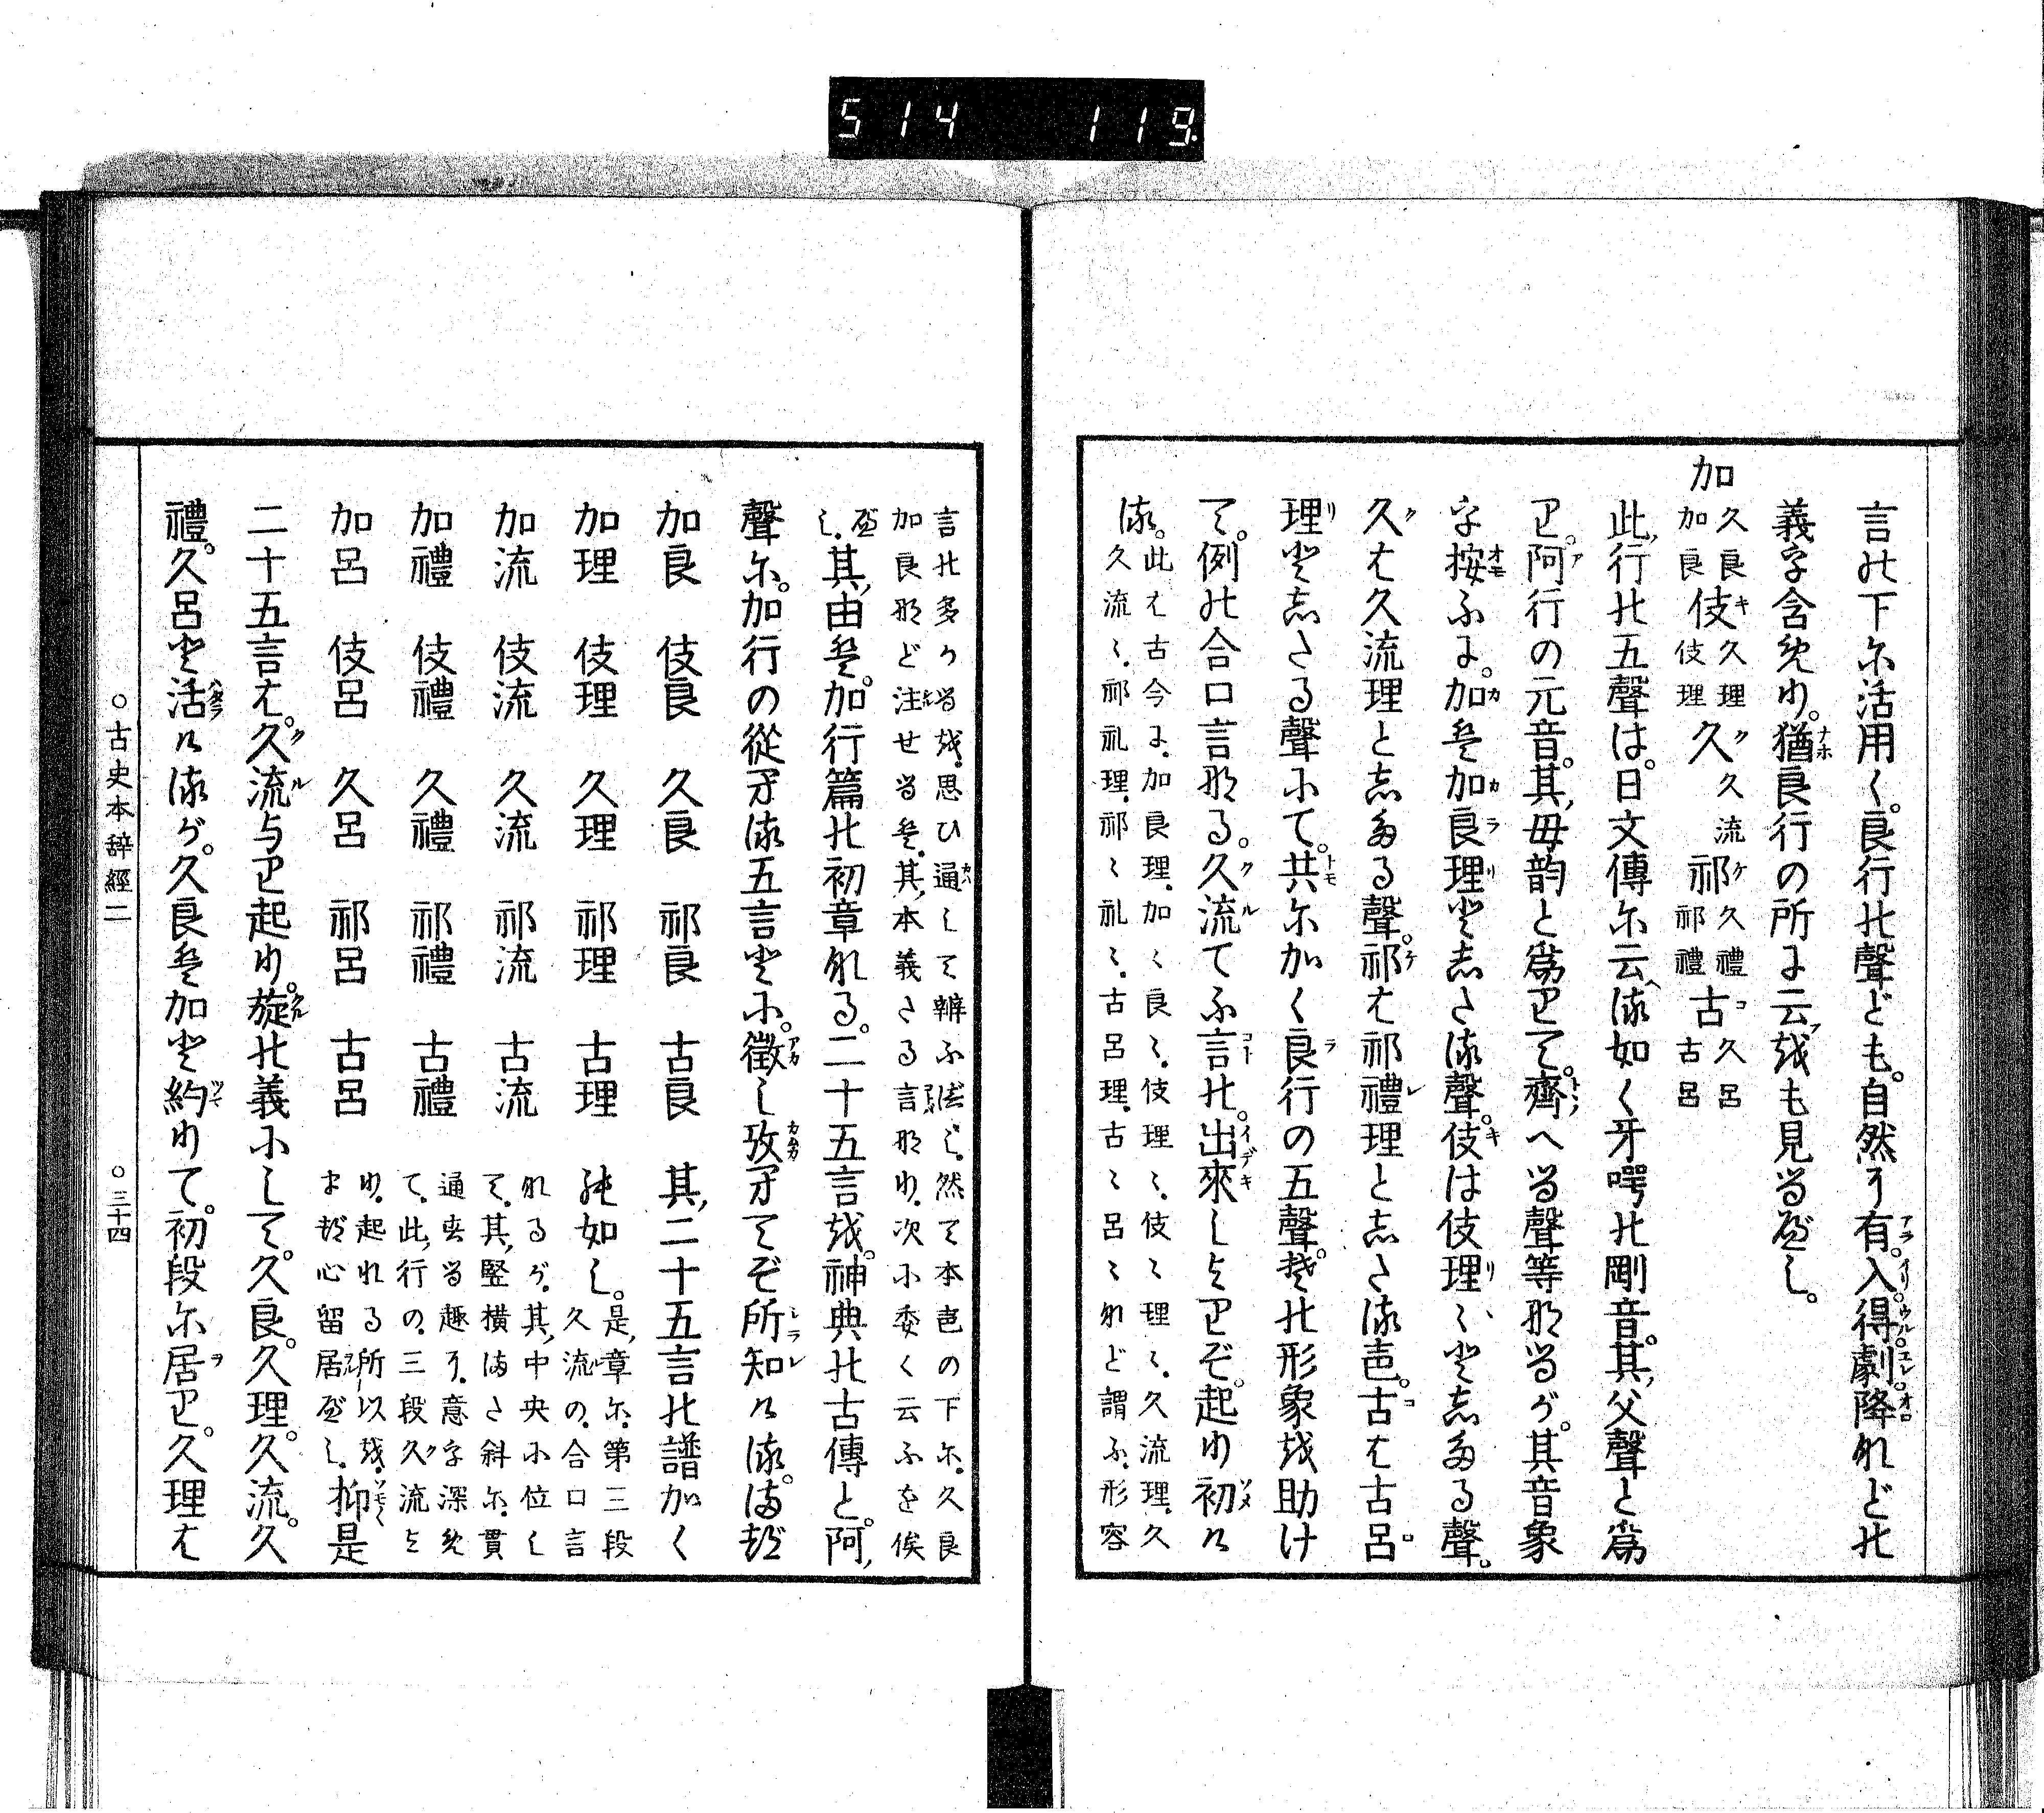 514 119.
言の下に活用く。良行の聲ども。自然に有。入得劇降などの
義を含めり。猶良行の所に云をも見るべし。
加 久良加良 伎 久理伎理 久 久流 祁 久禮祁禮 古 久呂古呂
此行の五聲は。日文傳に云へる如く牙喉の剛音。其父聲と爲
り。阿行の元音。其母韵と爲りて。齊へる聲等なるが。其音象
を按ふに。加は加良理としたる聲。伎は伎理〻としたる聲。
久は久流理としたる聲。祁は祁禮理としたる音。古は古呂
理としたる聲にて。共にかく良行の五聲ぞの形象を助け
て。例の合口言なる。久流てふ言の。出來しよりぞ。起り初け
る。此は古今に。加良理。加〻良〻。伎理〻。伎〻理〻。久流理。久
久流〻。祁礼理。祁〻礼〻。古呂理。古〻呂〻など謂ふ。形容
言の多かるを。思ひ通して辨ふべし。然て本音の下に。久良
加良など注せるは。其本義たる言なり。次に委く云ふを俟
べし。其由は。加行篇の初章なる。二十五言を。神典の古傳と。阿
聲に。加行の從へる五言とに。徵し攷へてぞ所知ける。まづ
加良 伎良 久良 祁良 古良 其二十五言の譜かく
加理 伎理 久理 祁理 古理 の如し。是章に。第三段
久流の。合口言
加流 伎流 久流 祁流 古流 なるが。其中央に位し
て。其竪横また斜に。貫
加禮 伎禮 久禮 祁禮 古禮 通せる趣に。意を深め
て。此行の。三段久流よ
加呂 伎呂 久呂 祁呂 古呂 り。起れる所以を。
まづ心留居べし。抑是
二十五言は。久流より起り。旋の義にして。久良。久理。久流。久
禮。久呂と活ける が。久良は加と約りて。初段に居り。久理は
○古史本辭經二 ○三十四